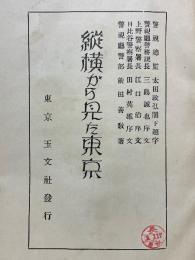 警視總監 太田政弘閣下題字
警視廳警務課長 三島誠也序文
上野警察署長 江口治序文
日比谷警察署長 田村英雄序文
警視廳警部 前田善敬著
縱橫から見た東京
東京 玉文社發行